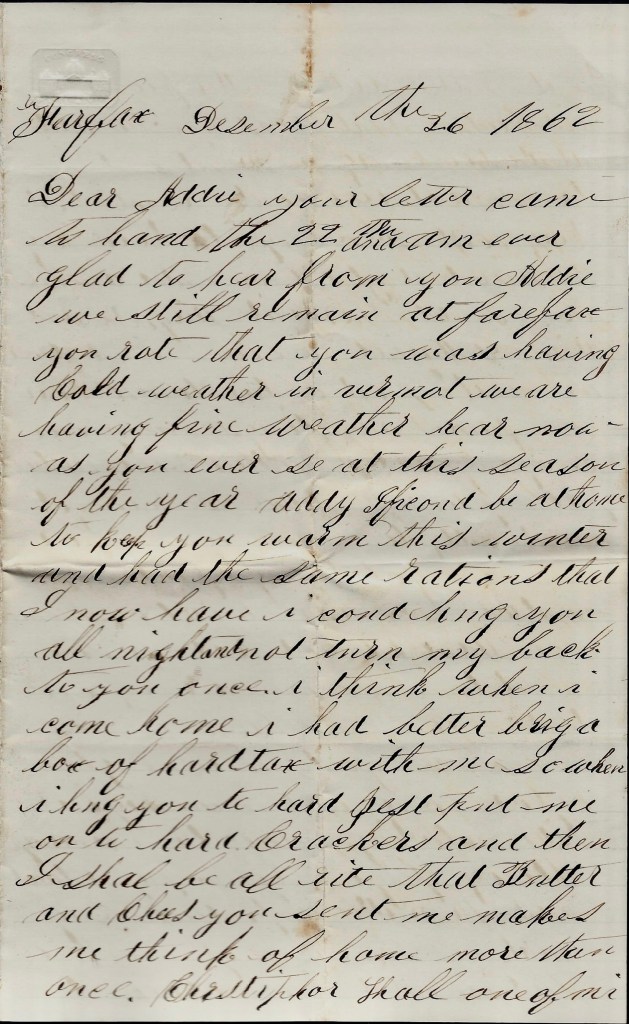 Fairfax Desember the 26 1862
Dear Addie your letter came
to hand the 22 the and am ever
glad to hear from you Addie
we still remain at farefax
you rote that you was having
Cold weather in vermot we are
having fine weather hear now
as you ever se at this season
of the year addy If i cond be at home
to kep you warm this winter
and had the same rations that
I now have i cond hug you
all night and not turn my back
to you once. i think when i
come home i had better brig a
box of hardtax with me so when
i hug you to hard jest put me
on to hard Crackers and then
I shal be all rite that Butter
and Chees you sent me makes
me think of home more than
once. Christiphor Hall one of mi